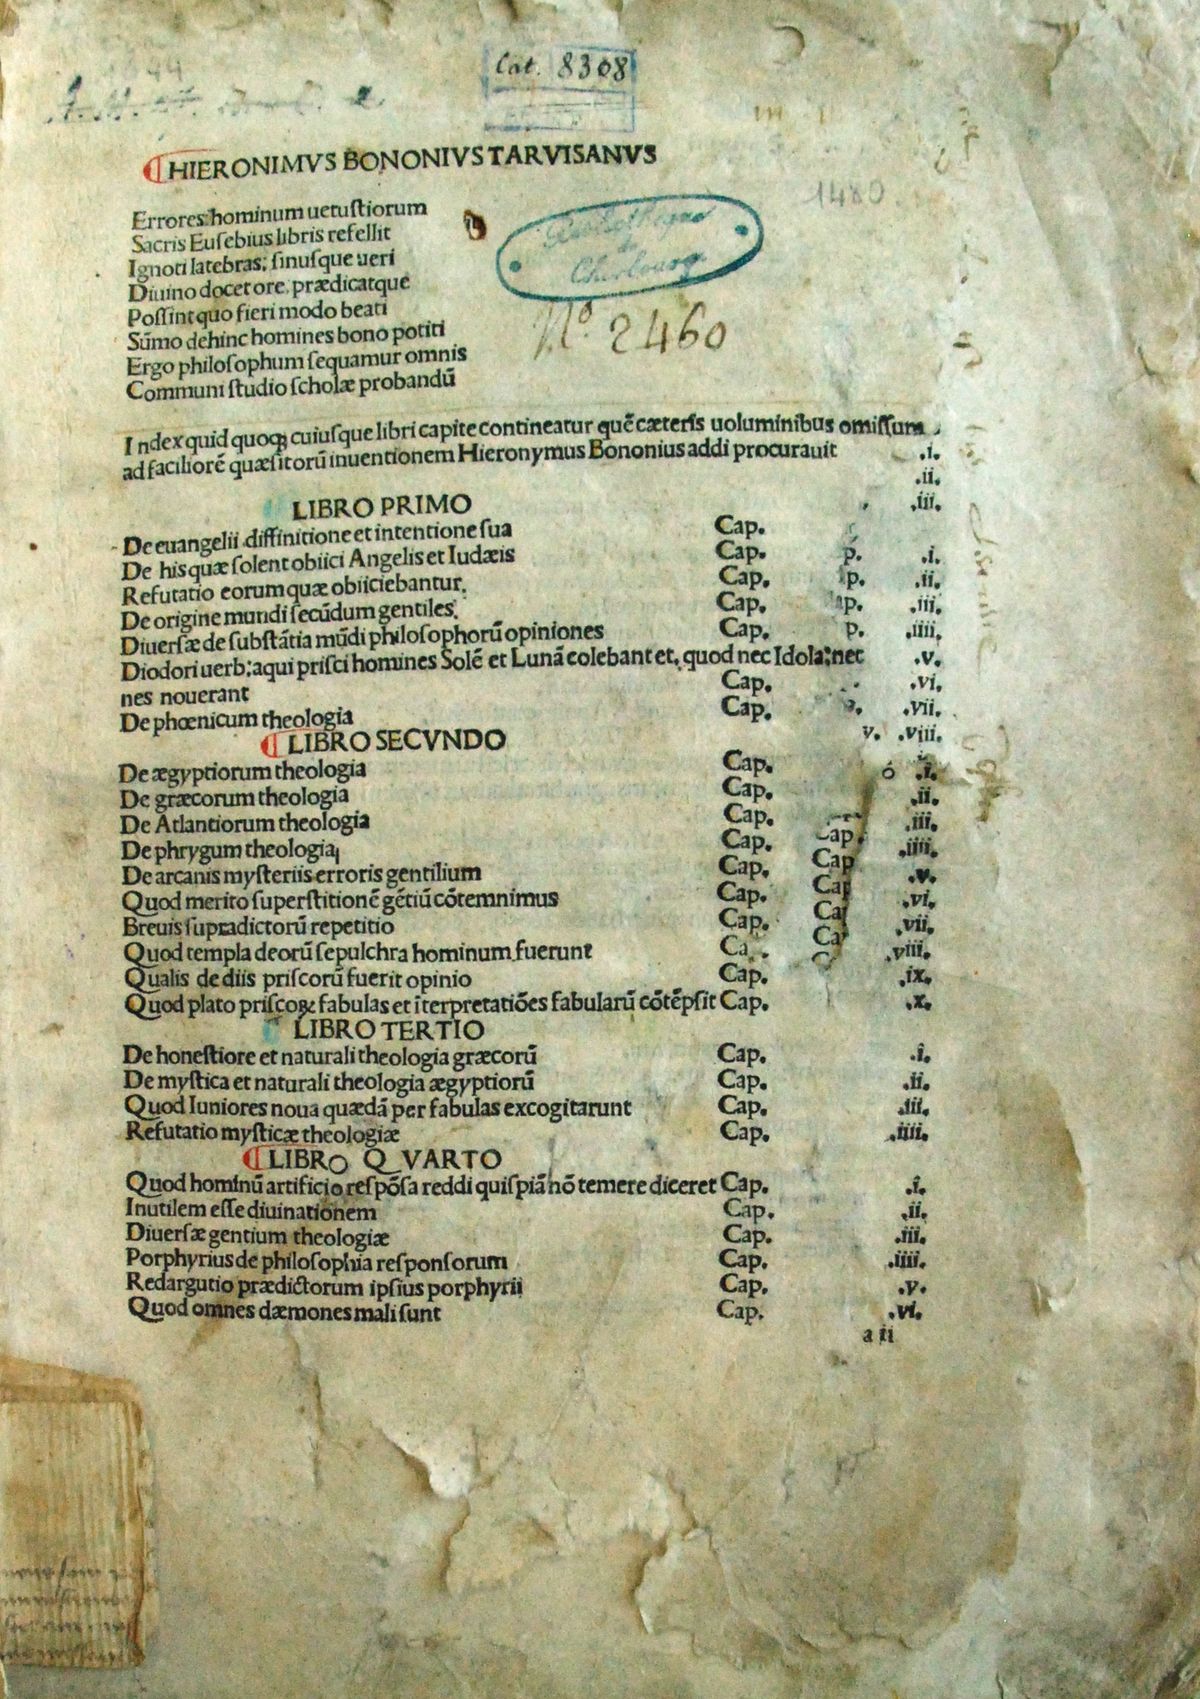 Cat. 8308
1480
¶HIERONIMVS BONONIVS TARVISANVS
Errores:hominum uetuſtiorum
Sacris Euſebius libris refellit
Ignoti latebras: ſinuſque ueri
Diuino docet ore. prædicatque
Poſſint quo fieri modo beati
Sūmo dehinc homines bono potiti
Ergo philoſophum ſequamur omnis
Communi ſtudio ſcholæ probandū
Bibliotheque
de
Cherbourg
Nº 2460
Index quid quoqꝫ cuiuſque libri capite contineatur quē cæteris uoluminibus omiſſum
ad faciliorē quæſitorū inuentionem Hieronymus Bononius addi procurauit .i.
.ii.
LIBRO PRIMO .iii.
De euangelii diffinitione et intentione ſua Cap.
De his quæ ſolent obiici Angelis et Iudæis Cap. p. .i.
Refutatio eorum quæ obiiciebantur. Cap. p. .ii.
De origine mundi ſecūdum gentiles. Cap. p. .iii.
Diuerſæ de ſubſtātia mūdi philoſophorū opiniones Cap. p. .iiii.
Diodori uerba:qui priſci homines Solē et Lunā colebant et, quod nec Idola:nec .v.
nes nouerant Cap. .vi.
De phœnicum theologia Cap. .vii.
¶LIBRO SECVNDO v. .viii.
De ægyptiorum theologia Cap. .i.
De græcorum theologia Cap. .ii.
De Atlantiorum theologia Cap. .iii.
De phrygum theologia Cap. Cap .iiii.
De arcanis myſteriis erroris gentilium Cap. Cap .v.
Quod merito ſuperſtitionē gētiū cōtemnimus Cap. Cap .vi.
Breuis ſupradictorū repetitio Cap. Ca .vii.
Quod templa deorū ſepulchra hominum fuerunt Ca . Ca .viii.
Qualis de diis priſcorū fuerit opinio Cap. .ix.
Quod plato priſcoꝝ fabulas et īterpretatiōes fabularū cōtēpſit Cap. .x.
LIBRO TERTIO
De honeſtiore et naturali theologia græcorū Cap. .i.
De myſtica et naturali theologia ægyptiorū Cap. .ii.
Quod Iuniores noua quædā per fabulas excogitarunt Cap. .iii.
Refutatio myſticæ theologiæ Cap. .iiii.
¶LIBRO QVARTO
Quod hominū artificio reſpōſa reddi quiſpiā nō temere diceret Cap. .i.
Inutilem eſſe diuinationem Cap. .ii.
Diuerſæ gentium theologiæ Cap. .iii.
Porphyrius de philoſophia reſponſorum Cap. .iiii.
Redargutio prædictorum ipſius porphyrii Cap. .v.
Quod omnes dæmones mali ſunt Cap. .vi.
a ii